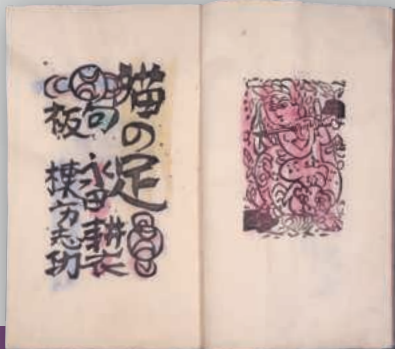 猫の足
句 永田耕衣
板 棟方志功